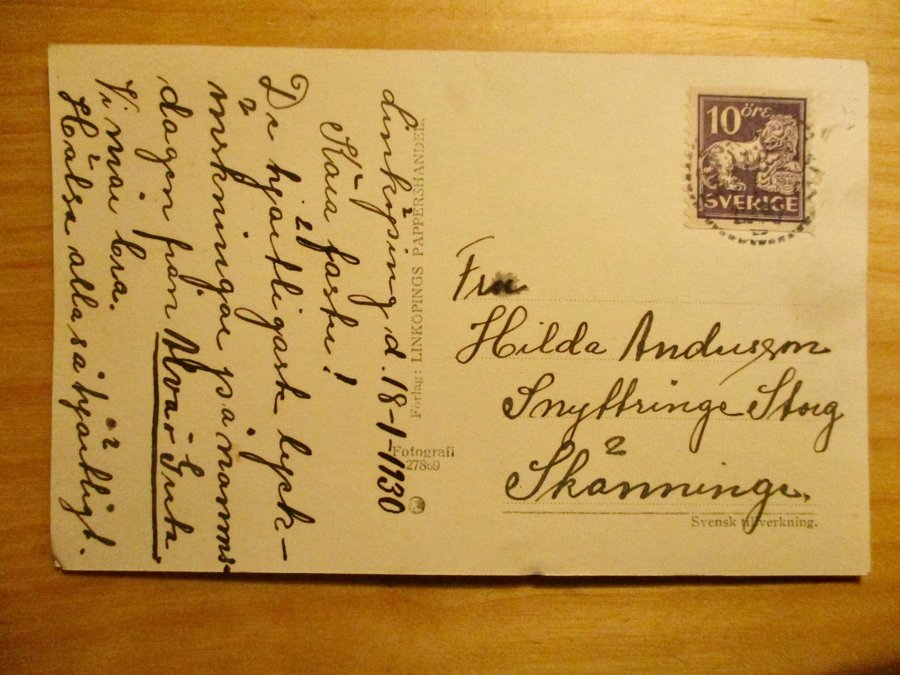 Linköping d. 18-1-1930
Kära faster!
De hjärtligaste lyck-
önskningar på namns-
dagen från Alvar Guta
Vi mår bra.
Hälsa alla så hjärtligt.
Förlag: LINKÖPINGS PAPPERSHANDEL.
Fotografi
27809
10 öre
SVERIGE
Fru
Hilda Andersson
Snyttringe Storg
Skänninge.
Svensk tillverkning.